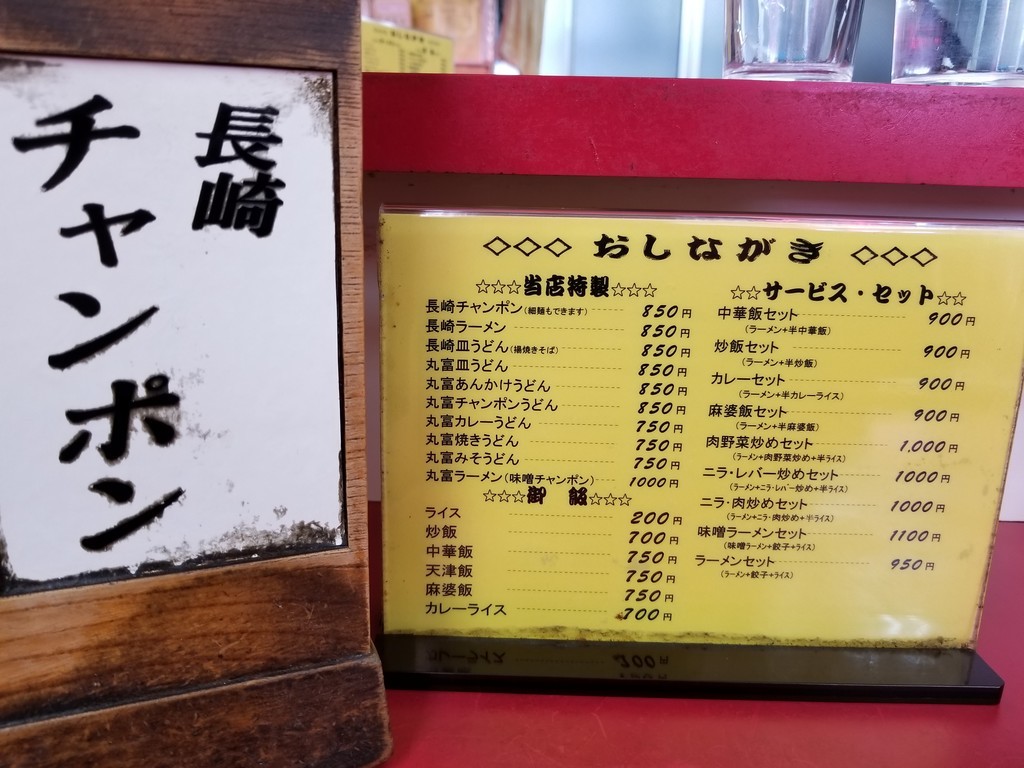 長崎
チャンポン
◇◇◇ おしながき ◇◇◇
☆☆☆当店特製☆☆☆
長崎チャンポン(細麺もできます) 850円
長崎ラーメン 850円
長崎皿うどん(揚焼きそば) 850円
丸富皿うどん 850円
丸富あんかけうどん 850円
丸富チャンポンうどん 850円
丸富カレーうどん 750円
丸富焼きうどん 750円
丸富みそうどん 750円
丸富ラーメン(味噌チャンポン) 1000円
☆☆☆御 飯☆☆☆
ライス 200円
炒飯 700円
中華飯 750円
天津飯 750円
麻婆飯 750円
カレーライス 700円
☆☆サービス・セット☆☆
中華飯セット 900円
(ラーメン+半中華飯)
炒飯セット 900円
(ラーメン+半炒飯)
カレーセット 900円
(ラーメン+半カレーライス)
麻婆飯セット 900円
(ラーメン+半麻婆飯)
肉野菜炒めセット 1,000円
(ラーメン+肉野菜炒め+半ライス)
ニラ・レバー炒めセット 1000円
(ラーメン+ニラ・レバー炒め+半ライス)
ニラ・肉炒めセット 1000円
(ラーメン+ニラ・肉炒め+半ライス)
味噌ラーメンセット 1100円
(味噌ラーメン+餃子+ライス)
ラーメンセット 950円
(ラーメン+餃子+ライス)